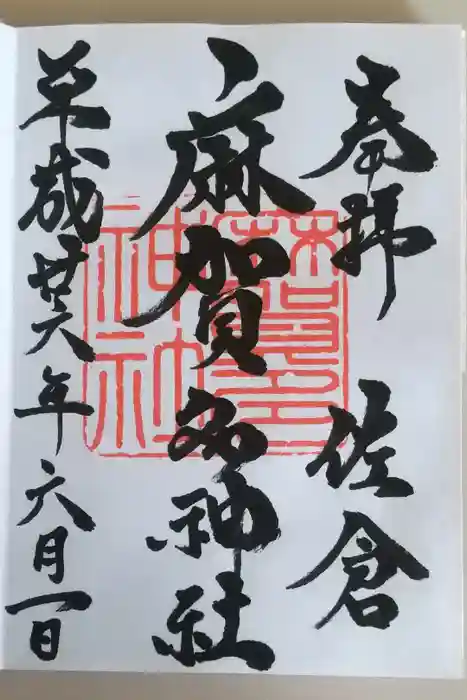 奉拝 佐倉
麻賀多神社
平成廿六年六月一日
麻賀多
神社